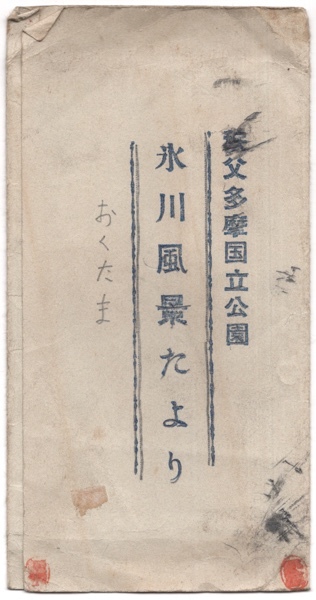 秩父多摩国立公園
氷川風景たより
おくたま